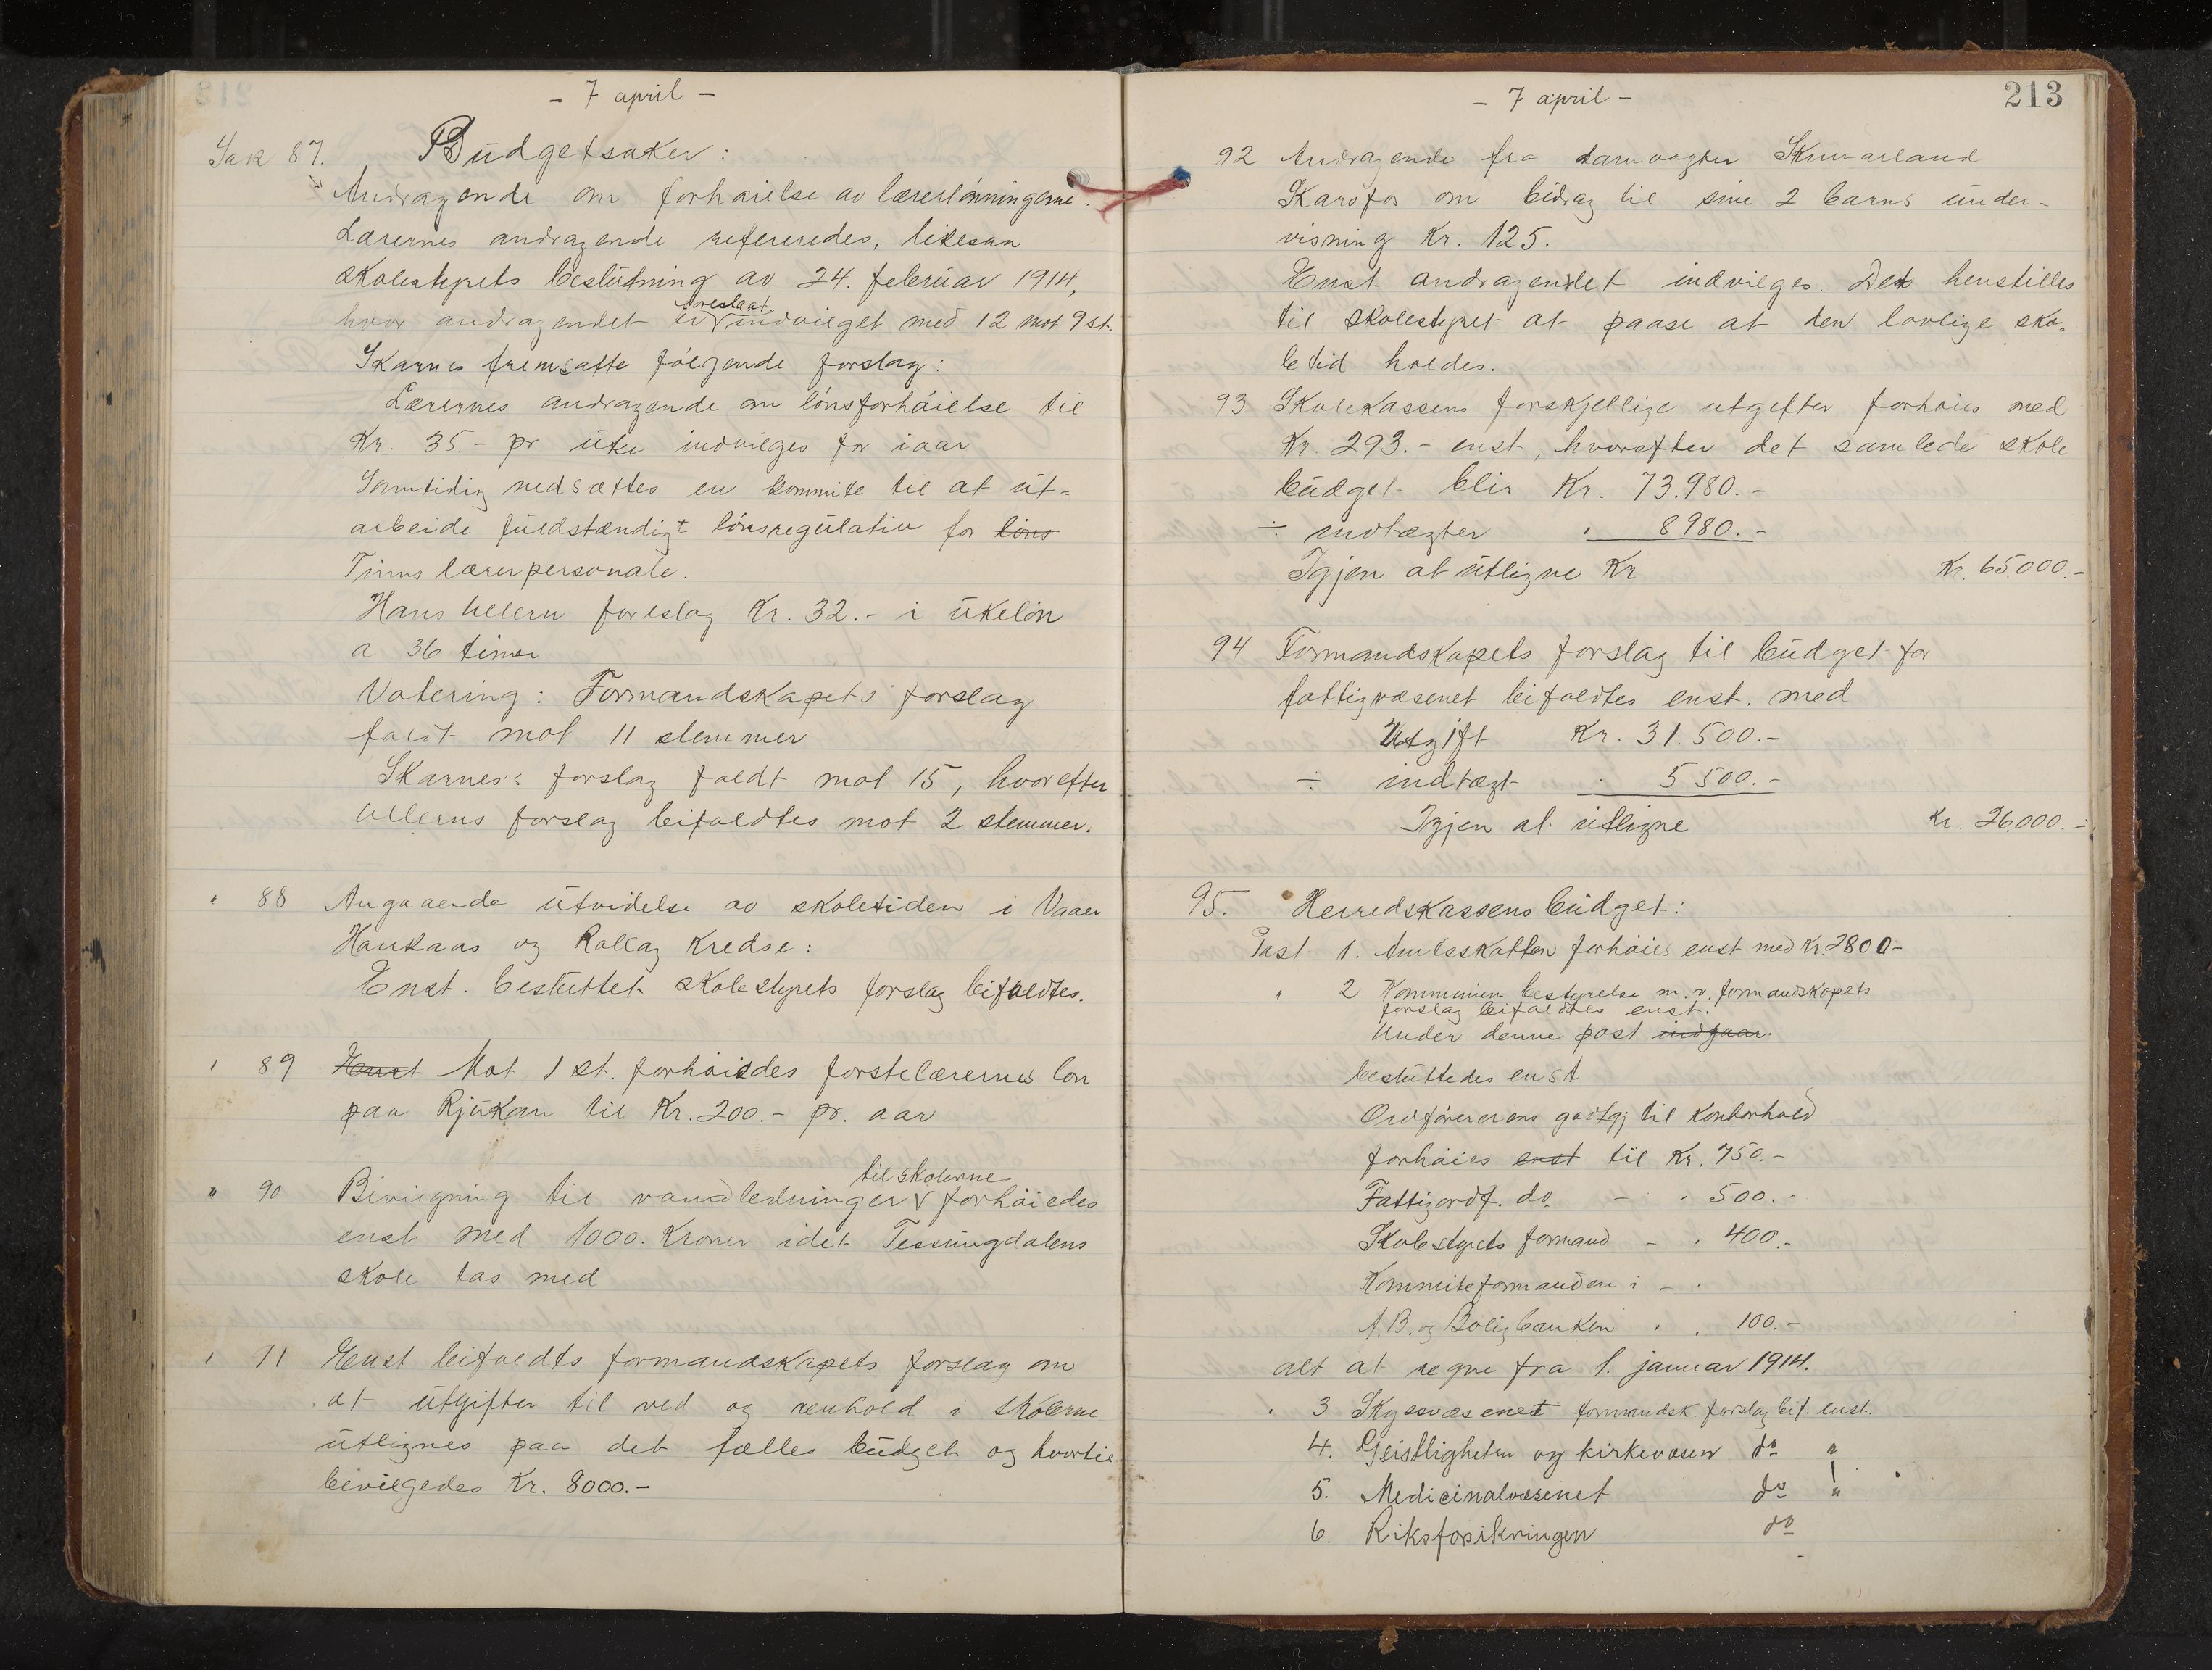 - 7 april -
Sak 87. Budgetsaker:
Andragende om forhøielse av lærerlønningerne.
Lærernes andragende refereredes, likesaa
skolestyrets beslutning av 24. februar 1914,
foreslaat
hvor andragendet er indvilget med 12 mot 9 st.
Skarnes fremsatte følgende forslag:
Lærernes andragende om lønsforhøielse til
Kr. 35.- pr uke indvilges for iaar
Samtidig nedsættes en kommite til at ut-
arbeide fuldstændigt lønsregulativ for løns
Tinns lærerpersonale.
Hans Ullern foreslag Kr. 32.- i ukeløn
a 36 timer
Votering: Formandskapets forslag
faldt mot 11 stemmer
Skarnes's forslag faldt mot 15, hvorefter
Ullerns forslag bifaldtes mot 2 stemmer.
" 88 Angaaende utvidelse av skoletiden i Vaaer
Haukaas og Rollag Kredse:
Enst. besluttet skolestyrets forslag bifaldtes.
" 89 Enst Mot 1 st. forhøiedes førstelærernes løn
paa Rjukan til Kr. 200.- pr. aar
til skolerne
" 90 Bevilgning til vandledninger forhøiedes
enst med 1000. Kroner idet Tessungdalens
skole tas med
" 91 Enst bifaldts formandskapets forslag om
at utgifter til ved og renhold i skolerne
utlignes paa det fælles budget og hvortil
bevilgedes Kr. 8000.-
- 7 april -
213
92 Andragende fra damvogter Skinnarland
Skarsfos om bidrag til sine 2 barns under-
visning Kr. 125.
Enst andragendet indvilges. Det henstilles
til skolestyret at paase at den lovlige sko-
letid holdes.
93 Skolekassens forskjellige utgifter forhøies med
Kr. 293.- enst, hvorefter det samlede skole
budget blir Kr. 73.980.-
÷ indtægter " 8980.-
Igjen at utligne Kr Kr. 65.000.-
94 Formandskapets forslag til budget for
fattigvæsenet bifaldtes enst. med
Utgift Kr. 31.500.-
÷ indtægt " 5500.-
Igjen at utligne Kr. 26.000.-
95. Herredskassens budget:
Post 1. Amtsskatten forhøies enst med Kr. 2800-
" 2 Kommunens bestyrelse m.v. formandskapets
forslag bifaldtes enst.
Under denne post indgaar.
besluttedes enst
Ordførerens godtgj til Kontorhold
forhøies enst til Kr. 750.-
Fattigordf. do. - " 500.-
Skolestyrets formand - " 400.-
Kommiteformanden i - "
A.B. og Boligbanken " " 100.-
alt at regne fra 1. januar 1914.
" 3 Skyssvæsenet formandsk. forslag bif. enst.
4. Geistligheten og kirkevæsen do "
5. Medicinalvæsenet do "
6. Riksforsikringen do